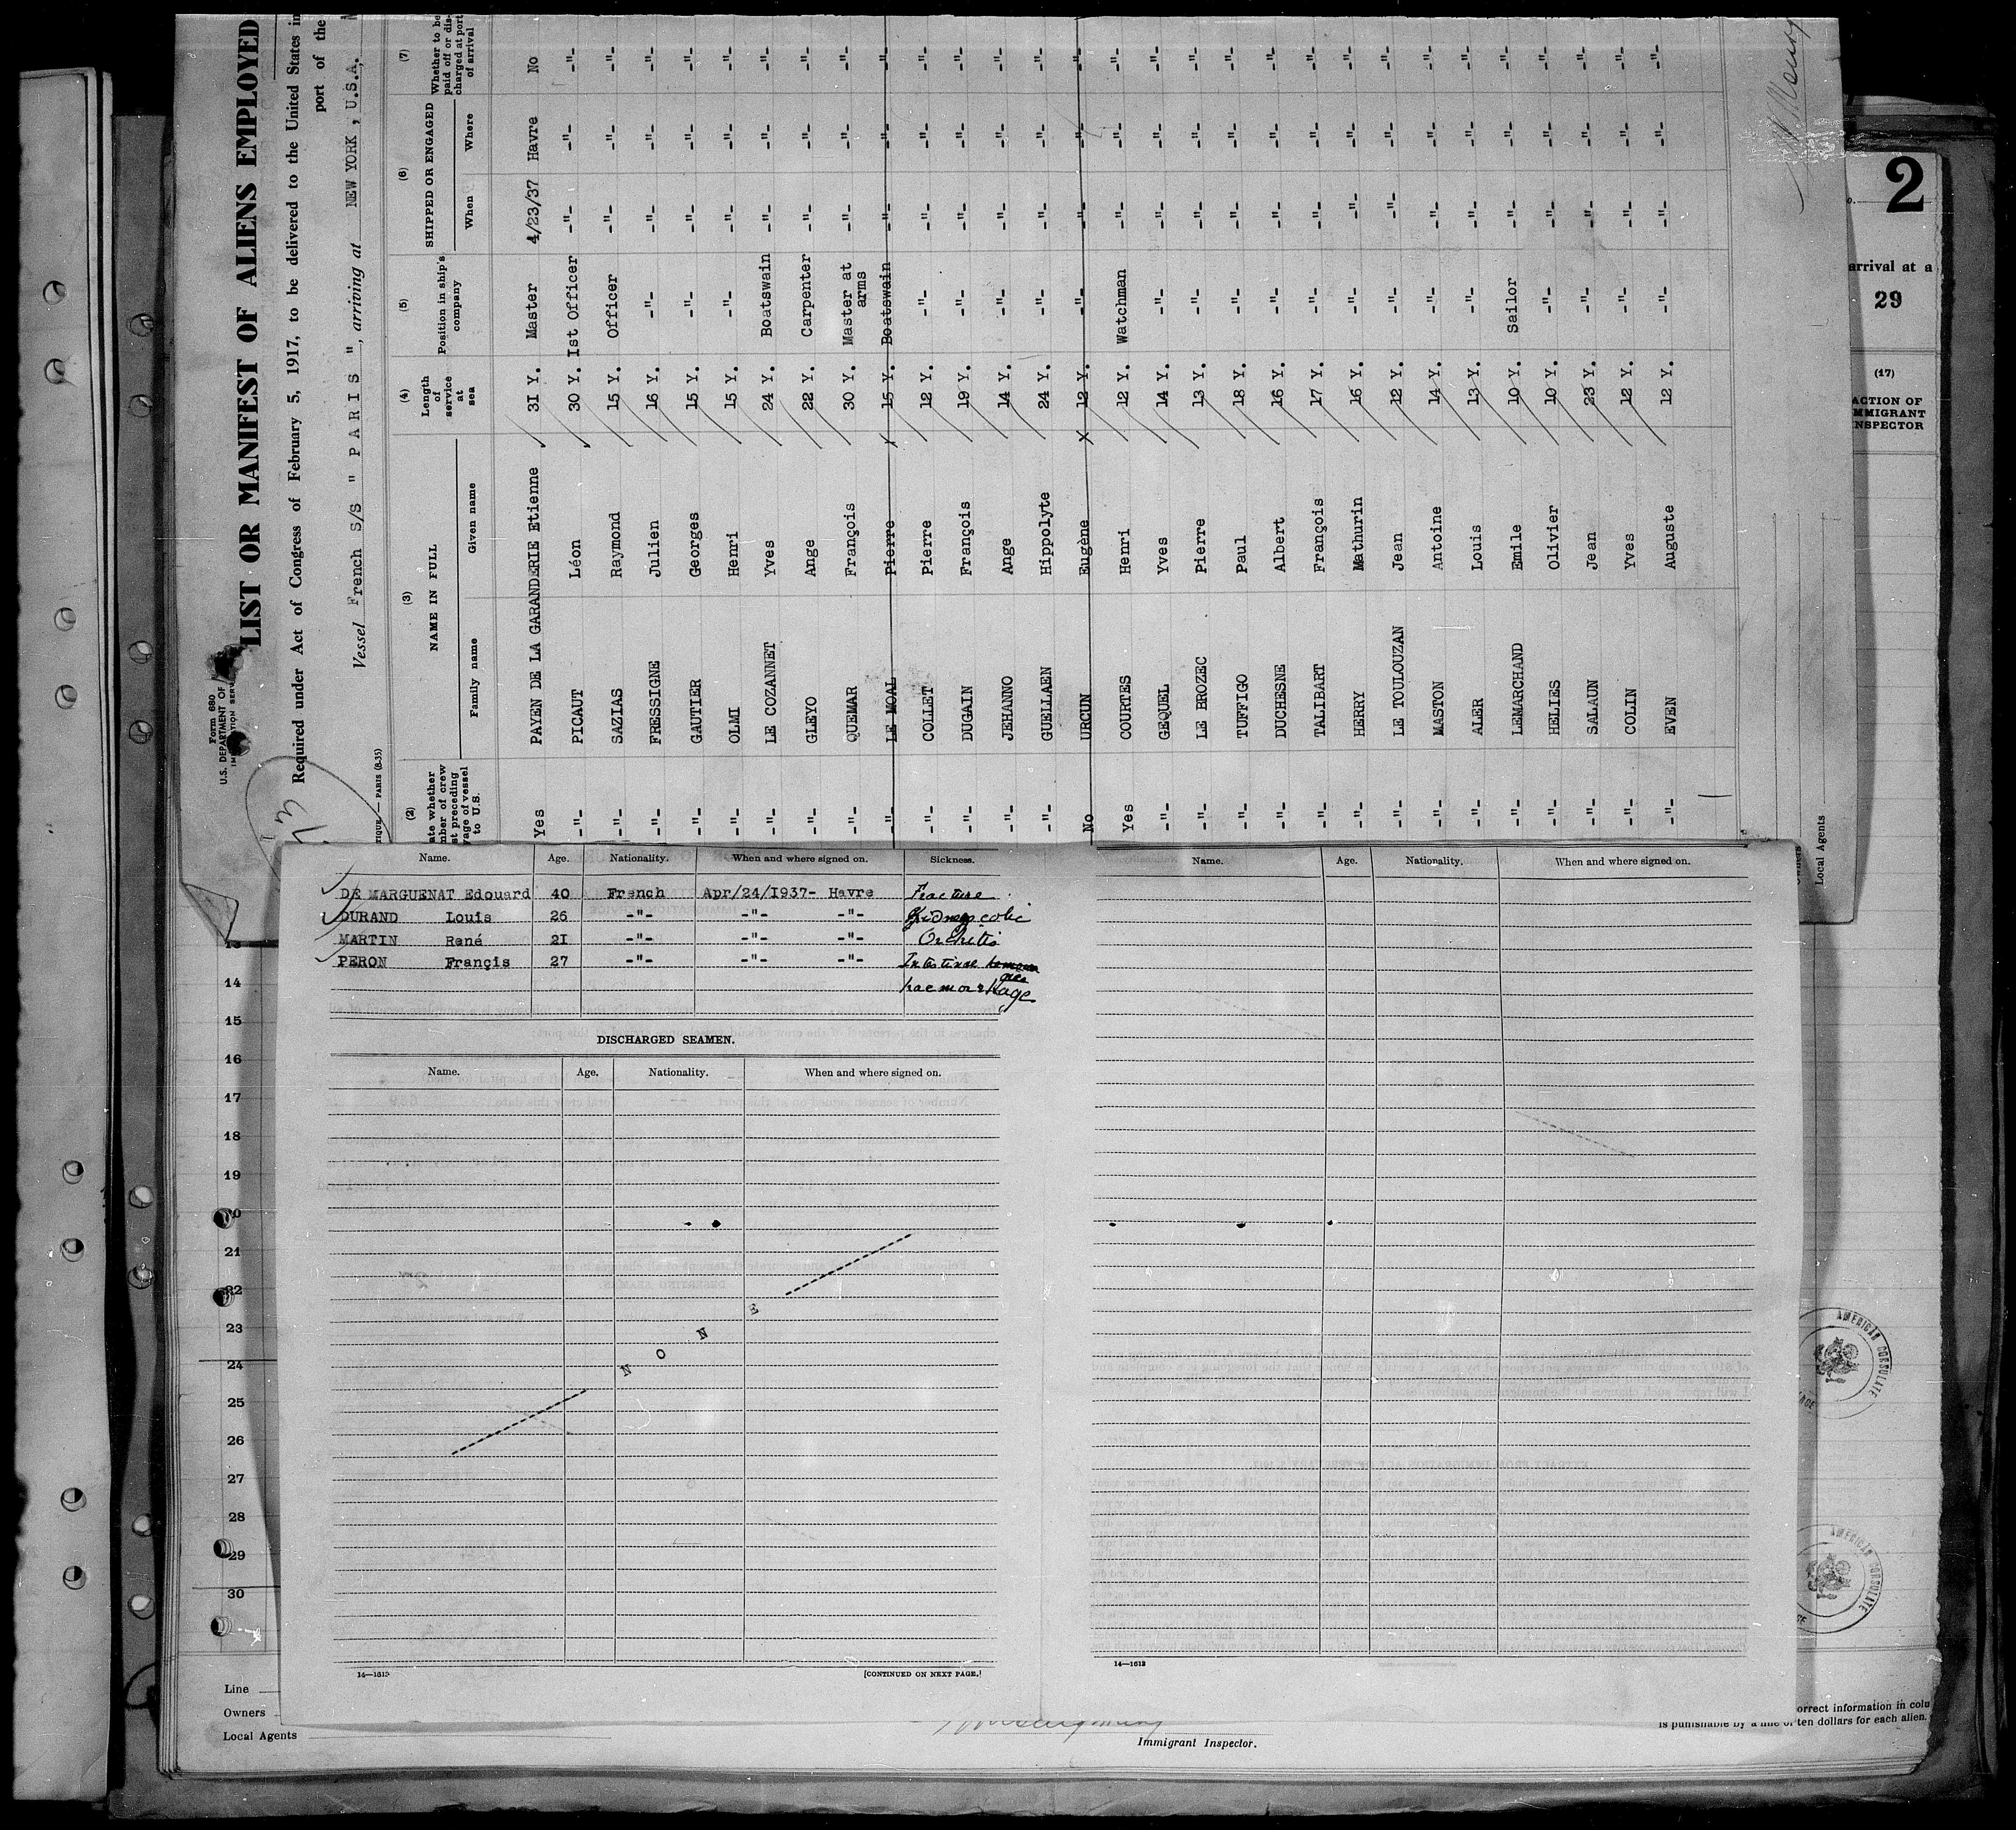 Form 680
U.S. DEPARTMENT OF
LIST OR MANIFEST OF ALIENS EMPLOYED
Required under Act of Congress of February 5, 1917, to be delivered to the United States in
port of the
Vessel French s/s " PARIS ", arriving at NEW YORK, U.S.A.
PARIS (8-35)
(2) (3) (4) (5) (6) (7)
ate whether
mber of crew
st preceding
yage of vessel
to U.S.
NAME IN FULL
Family name Given name
Length
of
service
at
sea
Position in ship's
company
SHIPPED OR ENGAGED
When Where
Whether to be
paid off or dis-
charged at port
of arrival
Yes PAYEN DE LA GARANDERIE Etienne 3I Y. Master 4/23/37 Havre No
-"- PICAUT Léon 30 Y. Ist Officer -"- -"- -"-
-"- SAZIAS Raymond 15 Y. Officer -"- -"- -"-
-"- FRESSIGNE Julien 16 Y. -"- -"- -"- -"-
-"- GAUTIER Georges 15 Y. -"- -"- -"- -"-
-"- OLMI Henri 15 Y. -"- -"- -"- -"-
-"- LE COZANNET Yves 24 Y. Boatswain -"- -"- -"-
-"- GLEYO Ange 22 Y. Carpenter -"- -"- -"-
-"- QUEMAR François 30 Y. Master at arms -"- -"- -"-
-"- LE MOAL Pierre 15 Y. Boatswain -"- -"- -"-
-"- COLLET Pierre 12 Y. -"- -"- -"- -"-
-"- DUGAIN François 19 Y. -"- -"- -"- -"-
-"- JEHANNO Ange 14 Y. -"- -"- -"- -"-
-"- GUELLAEN Hippolyte 24 Y. -"- -"- -"- -"-
No URCUN Eugène 12 Y. -"- -"- -"- -"-
Yes COURTES Henri 12 Y. Watchman -"- -"- -"-
-"- GEQUEL Yves 14 Y. -"- -"- -"- -"-
-"- LE BROZEC Pierre 13 Y. -"- -"- -"- -"-
-"- TUFFIGO Paul 18 Y. -"- -"- -"- -"-
-"- DUCHESNE Albert 16 Y. -"- -"- -"- -"-
-"- TALIBART François 17 Y. -"- -"- -"- -"-
-"- HERRY Mathurin 16 Y. -"- -"- -"- -"-
-"- LE TOULOUZAN Jean 12 Y. -"- -"- -"- -"-
-"- MASTON Antoine 14 Y. -"- -"- -"- -"-
-"- ALER Louis 13 Y. -"- -"- -"- -"-
-"- LEMARCHAND Emile 10 Y. Sailor -"- -"- -"-
-"- HELIES Olivier 10 Y. -"- -"- -"- -"-
-"- SALAUN Jean 23 Y. -"- -"- -"- -"-
-"- COLIN Yves 12 Y. -"- -"- -"- -"-
-"- EVEN Auguste 12 Y. -"- -"- -"- -"-
Owners
Local Agents
2
arrival at a
29
(17)
ACTION OF
IMMIGRANT
INSPECTOR
Name. Age. Nationality. When and where signed on. Sickness.
DE MARGUENAT Edouard 40 French Apr/24/1937- Havre Fracture
DURAND Louis 26 -"- -"- -"- Kidney colic
MARTIN René 2I -"- -"- -"- Orchitis
PERON Françis 27 -"- -"- -"- Intestinal
haemorrhage
DISCHARGED SEAMEN.
Name. Age. Nationality. When and where signed on.
N O N E
14—1613
[CONTINUED ON NEXT PAGE.]
Name. Age. Nationality. When and where signed on.
14—1613
13
14
15
16
17
18
19
20
21
22
23
24
25
26
27
28
29
30
AMERICAN CONSULATE
AMERICAN CONSULATE
Line
Owners
Local Agents
Immigrant Inspector.
orrect information in colu
is punishable by a fine of ten dollars for each alien.